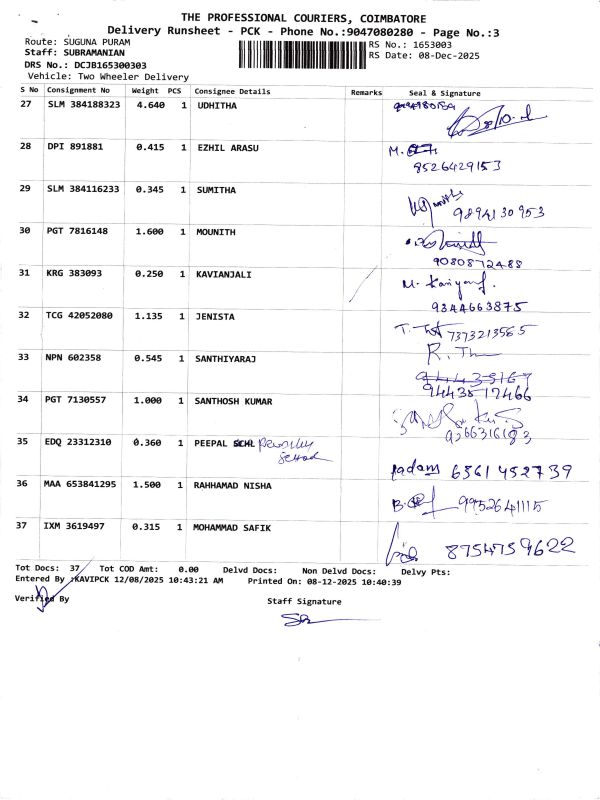 THE PROFESSIONAL COURIERS, COIMBATORE
Delivery Runsheet - PCK - Phone No.:9047080280 - Page No.:3
Route: SUGUNA PURAM
RS No.: 1653003
Staff: SUBRAMANIAN
RS Date: 08-Dec-2025
DRS No.: DCJB165300303
Vehicle: Two Wheeler Delivery
S No Consignment No Weight PCS Consignee Details Remarks Seal & Signature
27 SLM 384188323 4.640 1 UDHITHA
28 DPI 891881 0.415 1 EZHIL ARASU M.
8526429153
29 SLM 384116233 0.345 1 SUMITHA
9894130953
30 PGT 7816148 1.600 1 MOUNITH
9080872488
31 KRG 383093 0.250 1 KAVIANJALI M.
9344663875
32 TCG 42052080 1.135 1 JENISTA T. 7373213565
33 NPN 602358 0.545 1 SANTHIYARAJ R.
34 PGT 7130557 1.000 1 SANTHOSH KUMAR 9443517466
9266316183
35 EDQ 23312310 0.360 1 PEEPAL
6361452739
36 MAA 653841295 1.500 1 RAHHAMAD NISHA B. 9952641115
37 IXM 3619497 0.315 1 MOHAMMAD SAFIK 8754759622
Tot Docs: 37 Tot COD Amt: 0.00 Delvd Docs: Non Delvd Docs: Delvy Pts:
Entered By :KAVIPCK 12/08/2025 10:43:21 AM Printed On: 08-12-2025 10:40:39
Verified By Staff Signature